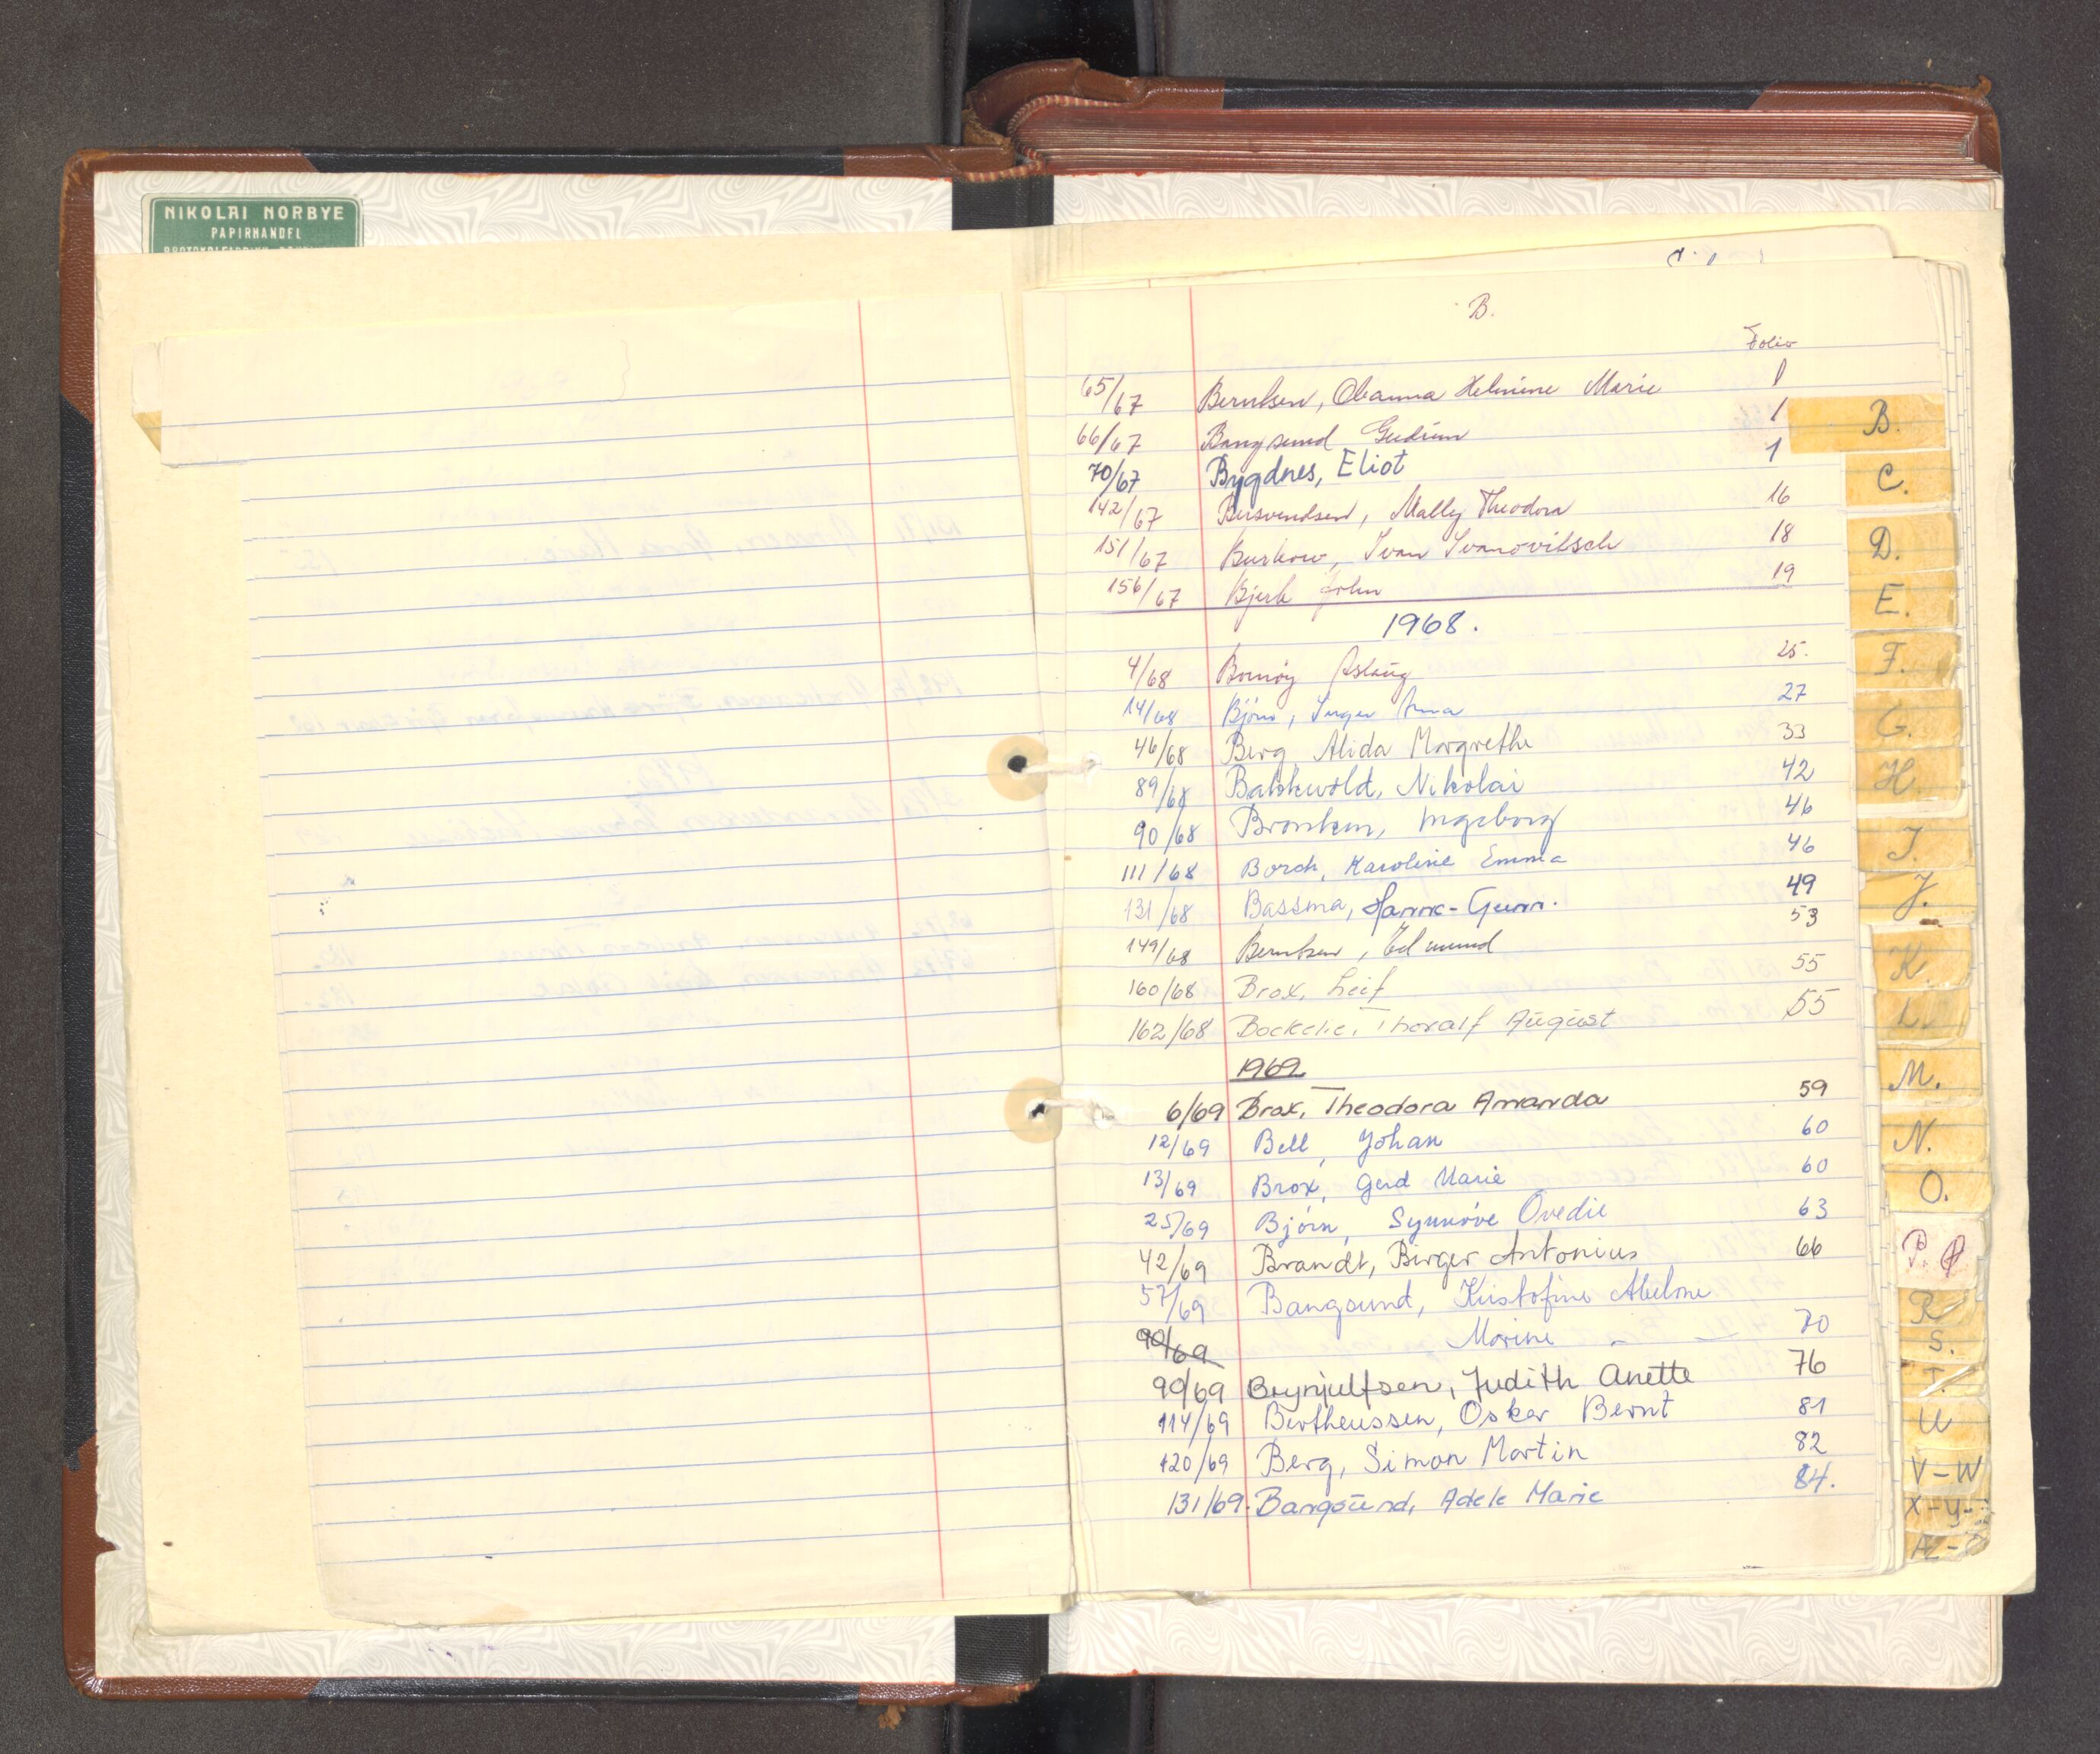 NIKOLAI NORBYE
PAPIRHANDEL
B.
Folio
65/67 Berntsen, Oleanna Helmine Marie 1
66/67 Bangsund Gudrun 1
70/67 Bygdnes, Eliot 1
142/67 Busvendsen, Mally Theodora 16
151/67 Burkow, Ivan Ivanovitsch 18
156/67 Bjerk John 19
1968.
4/68 Bornøy Aslaug 25.
14/68 Bjørn, Inger Anna 27
46/68 Berg Alida Margrethe 33
89/68 Bakkevold, Nikolai 42
90/68 Ingeborg 46
111/68 Borch, Karoline Emma 46
131/68 Bassma, Hanna-Gunn. 49
149/68 Berntsen, Edmund 53
160/68 Brox, Leif 55
162/68 Thoralf August 55
1969
6/69 Brox, Theodora Amanda 59
12/69 Bell, Johan 60
13/69 Brox, Gerd Marie 60
25/69 Bjørn, Synnøve Ovedie 63
42/69 Brandt, Birger Antonius 66
57/69 Bangsund, Kristofine Abelone
90/69 Marine 70
90/69 Brynjulfsen, Judith Anette 76
114/69 Bertheussen, Oskar Bernt 81
120/69 Berg, Simon Martin 82
131/69. Bangsund, Adele Marie 84.
B.
C.
D.
E.
F.
G.
H.
I.
J.
K.
L.
M.
N.
O.
P.
R
S.
T.
U
V-W
X-Y-